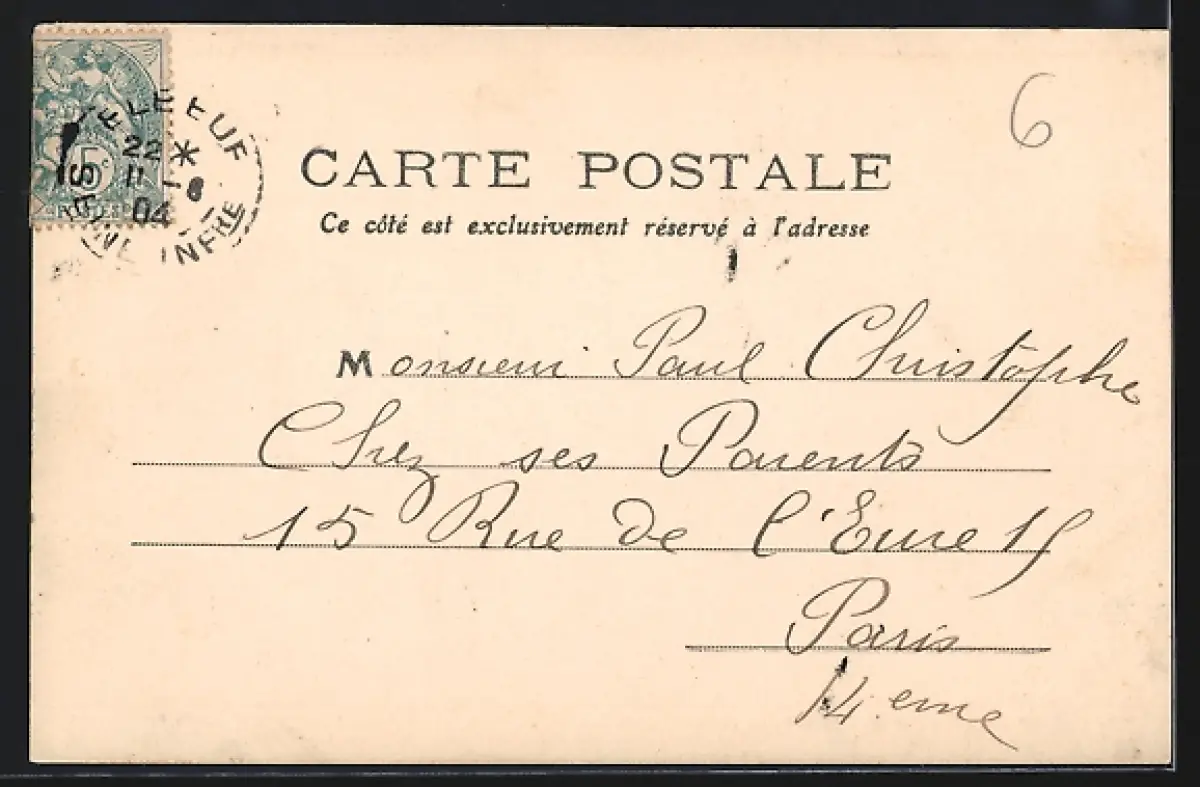 6
CARTE POSTALE
Ce côté est exclusivement réservé à l'adresse
Monsieur Paul Christophe
Chez ses Parents
15 Rue De l'Eure 15
Paris
14.eme
5c
22
11 -8
04
SEINE INFRE